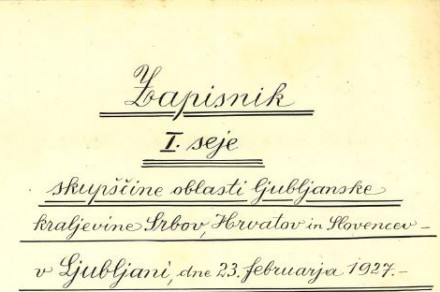 Zapisnik
I. seje
skupščine oblasti ljubljanske
kraljevine Srbov, Hrvatov in Slovencev –
v Ljubljani, dne 23. februarja 1927. –